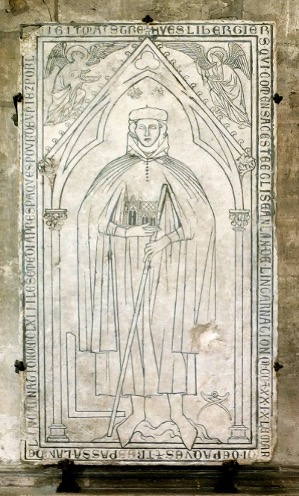 CI GIT MAISTRE HVES LIBERGIERS
QVI COMENSA CESTE EGLISE AN LAN DE LINCARNATION M CC ET XXIX LE MARDI
DE PAQVES ET TRESPASSA LAN DE
LINCARNATION M CC LXIII LE SEMEDI APRES PAQVES